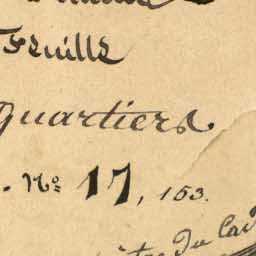 Feuille
quartiers
. No 17, 153.
du Cad